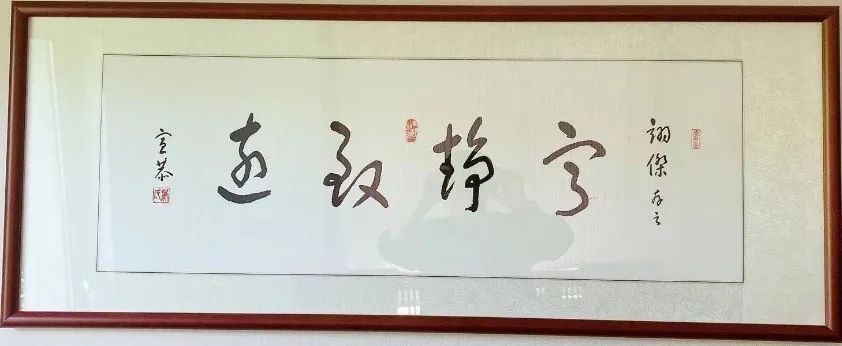 翊傑存之
宁静致远
宣恭